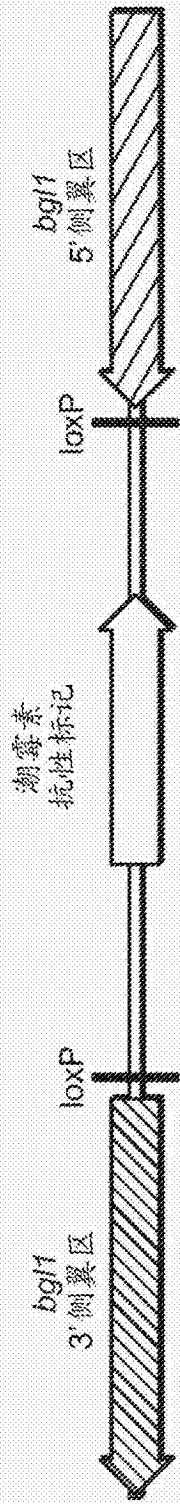 bgl1
3' 侧翼区
loxP
潮霉素
抗性标记
loxP
bgl1
5' 侧翼区